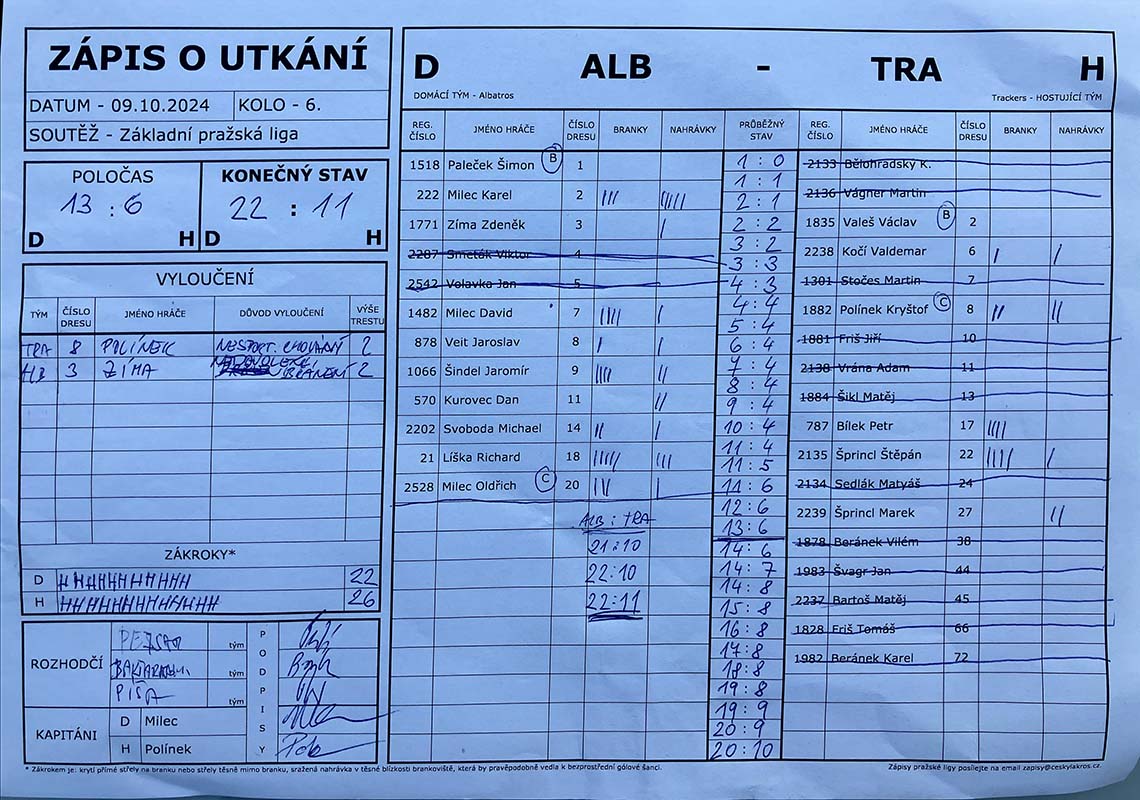 ZÁPIS O UTKÁNÍ
DATUM - 09.10.2024 KOLO - 6.
SOUTĚŽ - Základní pražská liga
POLOČAS KONEČNÝ STAV
13 : 6 22 : 11
D H D H
VYLOUČENÍ
TÝM ČÍSLO DRESU JMÉNO HRÁČE DŮVOD VYLOUČENÍ VÝŠE TRESTU
TRA 8 POLÍNEK NESPORT. CHOVÁNÍ 2
3 ZÍMA BRÁNĚNÍ 2
ZÁKROKY*
D 22
H 26
ROZHODČÍ tým
tým
PÍŠA tým
PODPISY
KAPITÁNI D Milec
H Polínek
D ALB - TRA H
DOMÁCÍ TÝM - Albatros Trackers - HOSTUJÍCÍ TÝM
REG. ČÍSLO JMÉNO HRÁČE ČÍSLO DRESU BRANKY NAHRÁVKY
1518 Paleček Šimon B 1
222 Milec Karel 2 ||| |||||
1771 Zíma Zdeněk 3 |
2287 Smeták Viktor 4
2542 Volavka Jan 5
1482 Milec David 7 |||| |
878 Veit Jaroslav 8 | |
1066 Šindel Jaromír 9 |||| ||
570 Kurovec Dan 11 ||
2202 Svoboda Michael 14 || |
21 Líška Richard 18 ||||| |||
2528 Milec Oldřich C 20 ||| |
ALB : TRA
21:10
22:10
22:11
PRŮBĚŽNÝ STAV
1 : 0
1 : 1
2 : 1
2 : 2
3 : 2
3 : 3
4 : 3
4 : 4
5 : 4
6 : 4
7 : 4
8 : 4
9 : 4
10 : 4
11 : 4
11 : 5
11 : 6
12 : 6
13 : 6
14 : 6
14 : 7
14 : 8
15 : 8
16 : 8
17 : 8
18 : 8
19 : 8
19 : 9
20 : 9
20 : 10
REG. ČÍSLO JMÉNO HRÁČE ČÍSLO DRESU BRANKY NAHRÁVKY
2133 Bělohradský K.
2136 Vágner Martin
1835 Valeš Václav B 2
2238 Kočí Valdemar 6 | |
1301 Stočes Martin 7
1882 Polínek Kryštof C 8 || ||
1881 Friš Jiří 10
2138 Vrána Adam 11
1884 Šikl Matěj 13
787 Bílek Petr 17 ||||
2135 Šprincl Štěpán 22 |||| |
2134 Sedlák Matyáš 24
2239 Šprincl Marek 27 ||
1878 Beránek Vilém 38
1983 Švagr Jan 44
2237 Bartoš Matěj 45
1828 Friš Tomáš 66
1982 Beránek Karel 72
* Zákrokem je: krytí přímé střely na branku nebo střely těsně mimo branku, sražená nahrávka v těsné blízkosti brankoviště, která by pravěpodobně vedla k bezprostřední gólové šanci.
Zápisy pražské ligy posílejte na email zapisy@ceskylakros.cz.